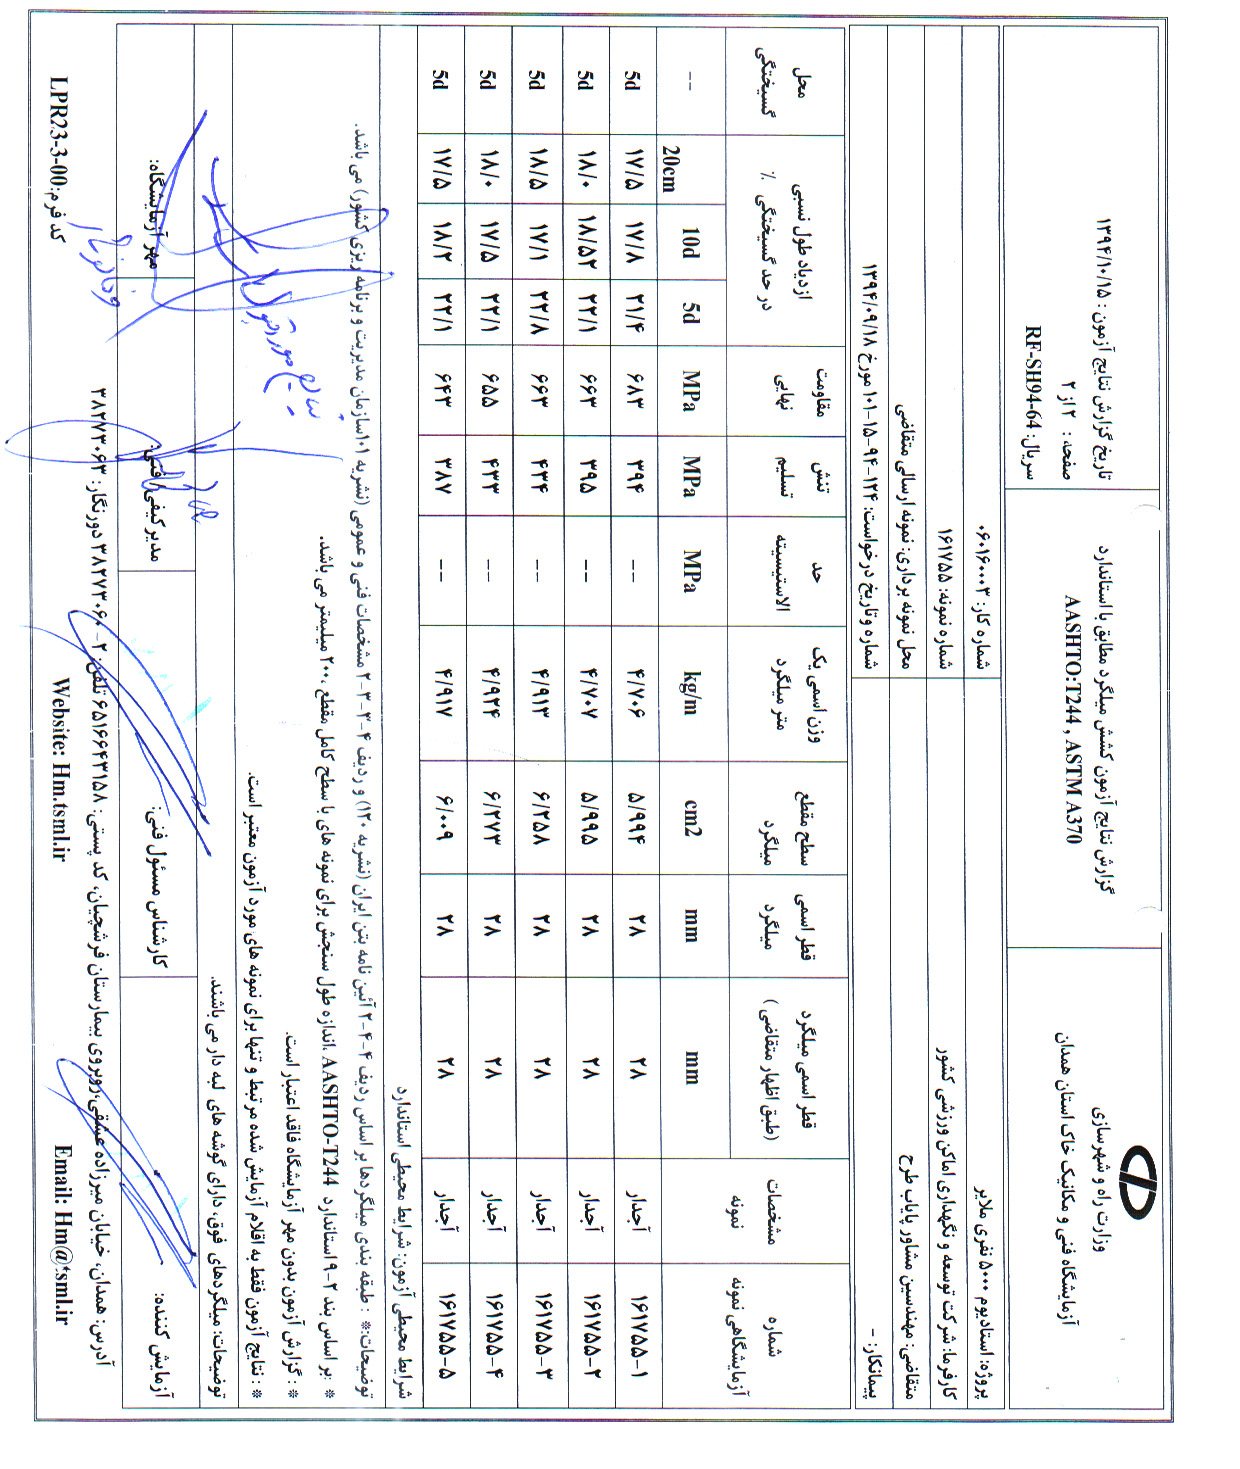 وزارت راه و شهرسازی
آزمایشگاه فنی و مکانیک خاک استان همدان
گزارش نتایج آزمون کشش میلگرد مطابق با استاندارد
AASHTO:T244 , ASTM A370
تاریخ گزارش نتایج آزمون : ۱۳۹۴/۱۰/۱۵
صفحه : ۲ از ۲
سریال: RF-SH94-64
پروژه: استادیوم ۵۰۰۰ نفری ملایر
شماره کار: ۰۶۰۱۶۰۰۰۳
کارفرما: شرکت توسعه و نگهداری اماکن ورزشی کشور
شماره نمونه: ۱۶۱۷۵۵
متقاضی: مهندسین مشاور پایاب طرح
محل نمونه برداری: نمونه ارسالی متقاضی
پیمانکار: -
شماره و تاریخ درخواست: ۱۲۴-۹۴-۱۵-۱۰۱ مورخ ۱۳۹۴/۰۹/۱۸
شماره آزمایشگاهی نمونه | مشخصات نمونه | قطر اسمی میلگرد (طبق اظهار متقاضی) | قطر اسمی میلگرد | سطح مقطع میلگرد | وزن اسمی یک متر میلگرد | حد الاستیسیته | تنش تسلیم | مقاومت نهایی | ازدیاد طول نسبی در حد گسیختگی ٪ | محل گسیختگی
mm | mm | cm2 | kg/m | MPa | MPa | MPa | 5d | 10d | 20cm | --
۱۶۱۷۵۵-۱ | آجدار | ۲۸ | ۲۸ | ۵/۹۹۴ | ۴/۷۰۶ | -- | ۳۹۴ | ۶۸۳ | ۲۱/۴ | ۱۷/۸ | ۱۷/۵ | 5d
۱۶۱۷۵۵-۲ | آجدار | ۲۸ | ۲۸ | ۵/۹۹۵ | ۴/۷۰۷ | -- | ۳۹۵ | ۶۶۳ | ۲۲/۱ | ۱۸/۵۲ | ۱۸/۰ | 5d
۱۶۱۷۵۵-۳ | آجدار | ۲۸ | ۲۸ | ۶/۲۵۸ | ۴/۹۱۳ | -- | ۴۳۴ | ۶۶۳ | ۲۲/۸ | ۱۷/۱ | ۱۸/۵ | 5d
۱۶۱۷۵۵-۴ | آجدار | ۲۸ | ۲۸ | ۶/۲۷۳ | ۴/۹۲۴ | -- | ۴۳۳ | ۶۵۵ | ۲۲/۱ | ۱۷/۵ | ۱۸/۰ | 5d
۱۶۱۷۵۵-۵ | آجدار | ۲۸ | ۲۸ | ۶/۰۰۹ | ۴/۹۱۷ | -- | ۳۸۷ | ۶۴۳ | ۲۲/۱ | ۱۸/۲ | ۱۷/۵ | 5d
شرایط محیطی آزمون: شرایط محیطی استاندارد
توضیحات:* : طبقه بندی میلگردها بر اساس ردیف ۴-۴-۲ آئین نامه بتن ایران (نشریه ۱۲۰) و ردیف ۴-۳-۳-۲ مشخصات فنی و عمومی (نشریه ۱۰۱سازمان مدیریت و برنامه ریزی کشور) می باشد.
* :بر اساس بند ۲-۹ استاندارد AASHTO-T244 ،اندازه طول سنجش برای نمونه های با سطح کامل مقطع ،۲۰۰ میلیمتر می باشد.
* : گزارش آزمون بدون مهر آزمایشگاه فاقد اعتبار است.
* : نتایج آزمون فقط به اقلام آزمایش شده مرتبط و تنها برای نمونه های مورد آزمون معتبر است.
توضیحات: میلگردهای فوق، دارای گوشه های لبه دار می باشند.
آزمایش کننده:
کارشناس مسئول فنی:
مدیر کیفی/ فنی:
مهر آزمایشگاه:
آدرس: همدان، خیابان میرزاده عشقی،روبروی بیمارستان فرشچیان، کد پستی: ۶۵۱۶۶۴۳۱۵۸ تلفن: ۲-۳۸۲۷۳۰۶۰ دورنگار: ۳۸۲۷۳۰۶۳
Email: Hm@tsml.ir
Website: Hm.tsml.ir
کد فرم:LPR23-3-00